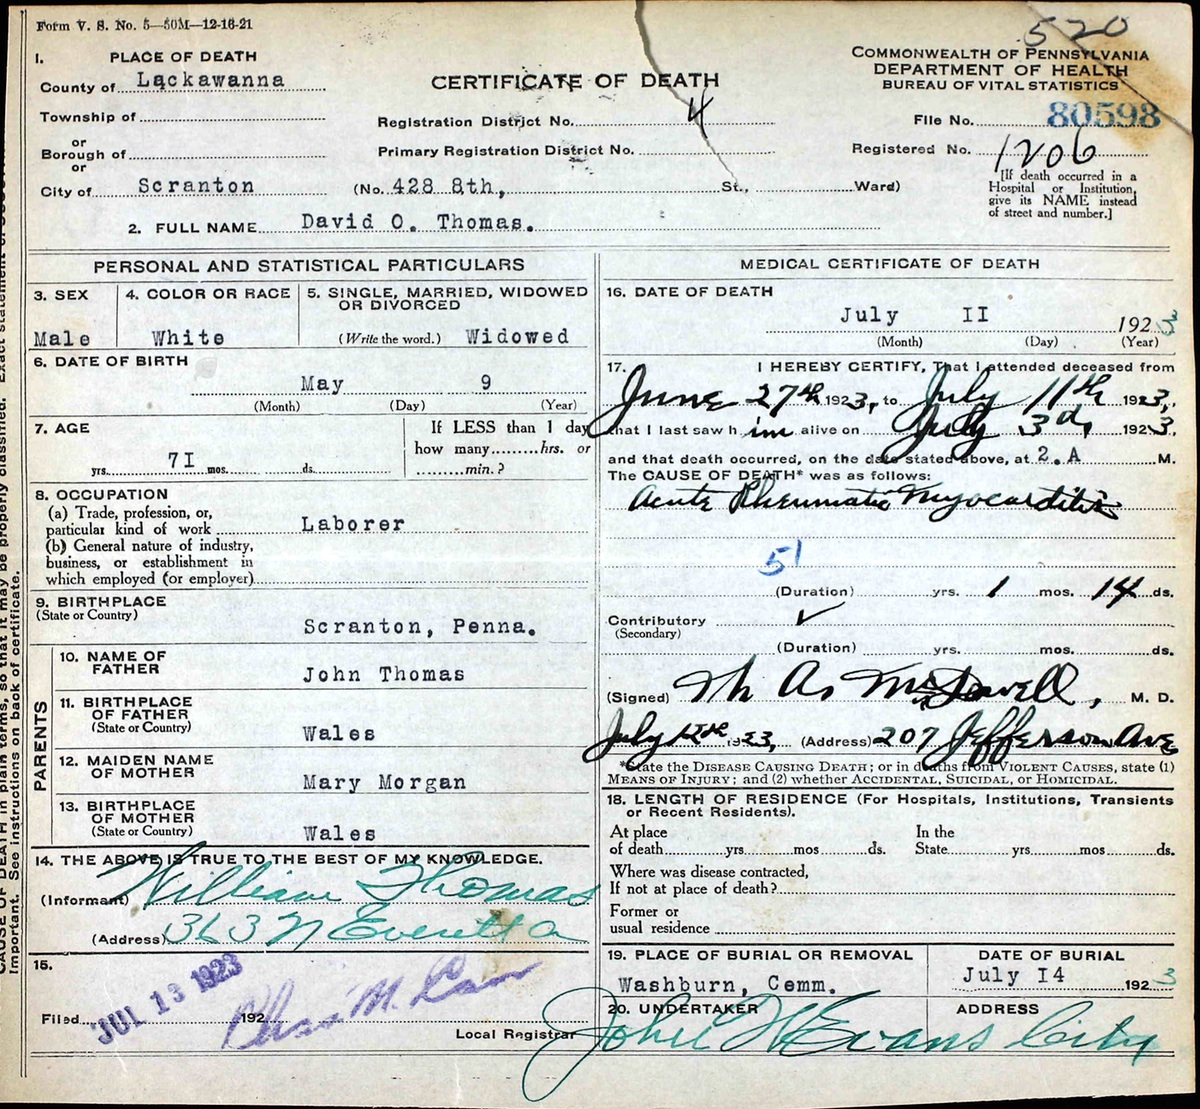 Form V. S. No. 5—50M—12-16-21
520
1. PLACE OF DEATH
County of Lackawanna
Township of
or
Borough of
or
City of Scranton
CERTIFICATE OF DEATH
Registration District No. 4
Primary Registration District No.
(No. 428 8th, St., Ward)
COMMONWEALTH OF PENNSYLVANIA
DEPARTMENT OF HEALTH
BUREAU OF VITAL STATISTICS
File No. 80598
Registered No. 1206
[If death occurred in a
Hospital or Institution,
give its NAME instead
of street and number.]
2. FULL NAME David O. Thomas.
PERSONAL AND STATISTICAL PARTICULARS
3. SEX
Male
4. COLOR OR RACE
White
5. SINGLE, MARRIED, WIDOWED
OR DIVORCED
(Write the word.) Widowed
6. DATE OF BIRTH
May 9
(Month) (Day) (Year)
7. AGE
71 yrs. mos. ds.
If LESS than 1 day
how many hrs. or
min.?
8. OCCUPATION
(a) Trade, profession, or,
particular kind of work Laborer
(b) General nature of industry,
business, or establishment in
which employed (or employer)
9. BIRTHPLACE
(State or Country)
Scranton, Penna.
PARENTS
10. NAME OF
FATHER
John Thomas
11. BIRTHPLACE
OF FATHER
(State or Country)
Wales
12. MAIDEN NAME
OF MOTHER
Mary Morgan
13. BIRTHPLACE
OF MOTHER
(State or Country)
Wales
14. THE ABOVE IS TRUE TO THE BEST OF MY KNOWLEDGE.
(Informant) William Thomas
(Address) 313 N Everett a
15.
Filed JUL 13 1923 192
Local Registrar
MEDICAL CERTIFICATE OF DEATH
16. DATE OF DEATH
July II 1923
(Month) (Day) (Year)
17. I HEREBY CERTIFY, That I attended deceased from
June 27th 1923, to July 11th 1923,
that I last saw him alive on July 3d, 1923.
and that death occurred, on the date stated above, at 2.A M.
The CAUSE OF DEATH* was as follows:
Acute Rheumatic Myocarditis
51
(Duration) yrs. 1 mos. 14 ds.
Contributory ✓
(Secondary)
(Duration) yrs. mos. ds.
(Signed) M. A. McDowell, M. D.
July 12th 1923, (Address) 207 Jefferson Ave
*State the DISEASE CAUSING DEATH; or in deaths from VIOLENT CAUSES, state (1)
MEANS OF INJURY; and (2) whether ACCIDENTAL, SUICIDAL, or HOMICIDAL.
18. LENGTH OF RESIDENCE (For Hospitals, Institutions, Transients
or Recent Residents).
At place
of death yrs. mos. ds.
In the
State yrs. mos. ds.
Where was disease contracted,
If not at place of death?
Former or
usual residence
19. PLACE OF BURIAL OR REMOVAL
Washburn, Cemm.
DATE OF BURIAL
July I4 1923
20. UNDERTAKER
ADDRESS
John H Evans City
CAUSE OF DEATH in plain terms, so that it may be properly classified. Exact statement of
Important. See instructions on back of certificate.